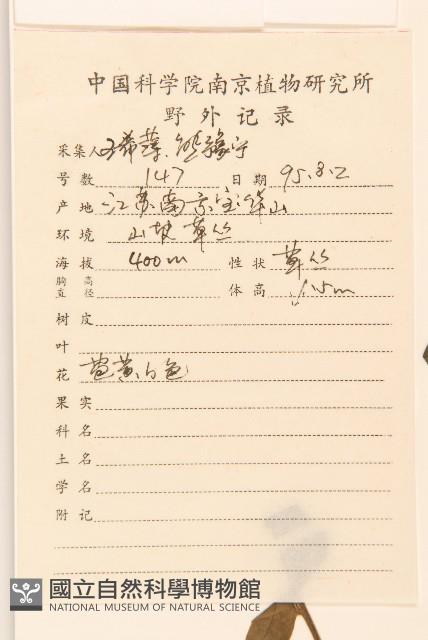 中国科学院南京植物研究所
野外记录
采集人 王希蕖, 熊豫宁
号数 147 日期 95.8.2
产地 江苏南京宝华山
环境 山坡草丛
海拔 400m 性状 草丛
胸高直径 体高 1.5m
树皮
叶
花 苞黄白色
果实
科名
土名
学名
附记
國立自然科學博物館
NATIONAL MUSEUM OF NATURAL SCIENCE